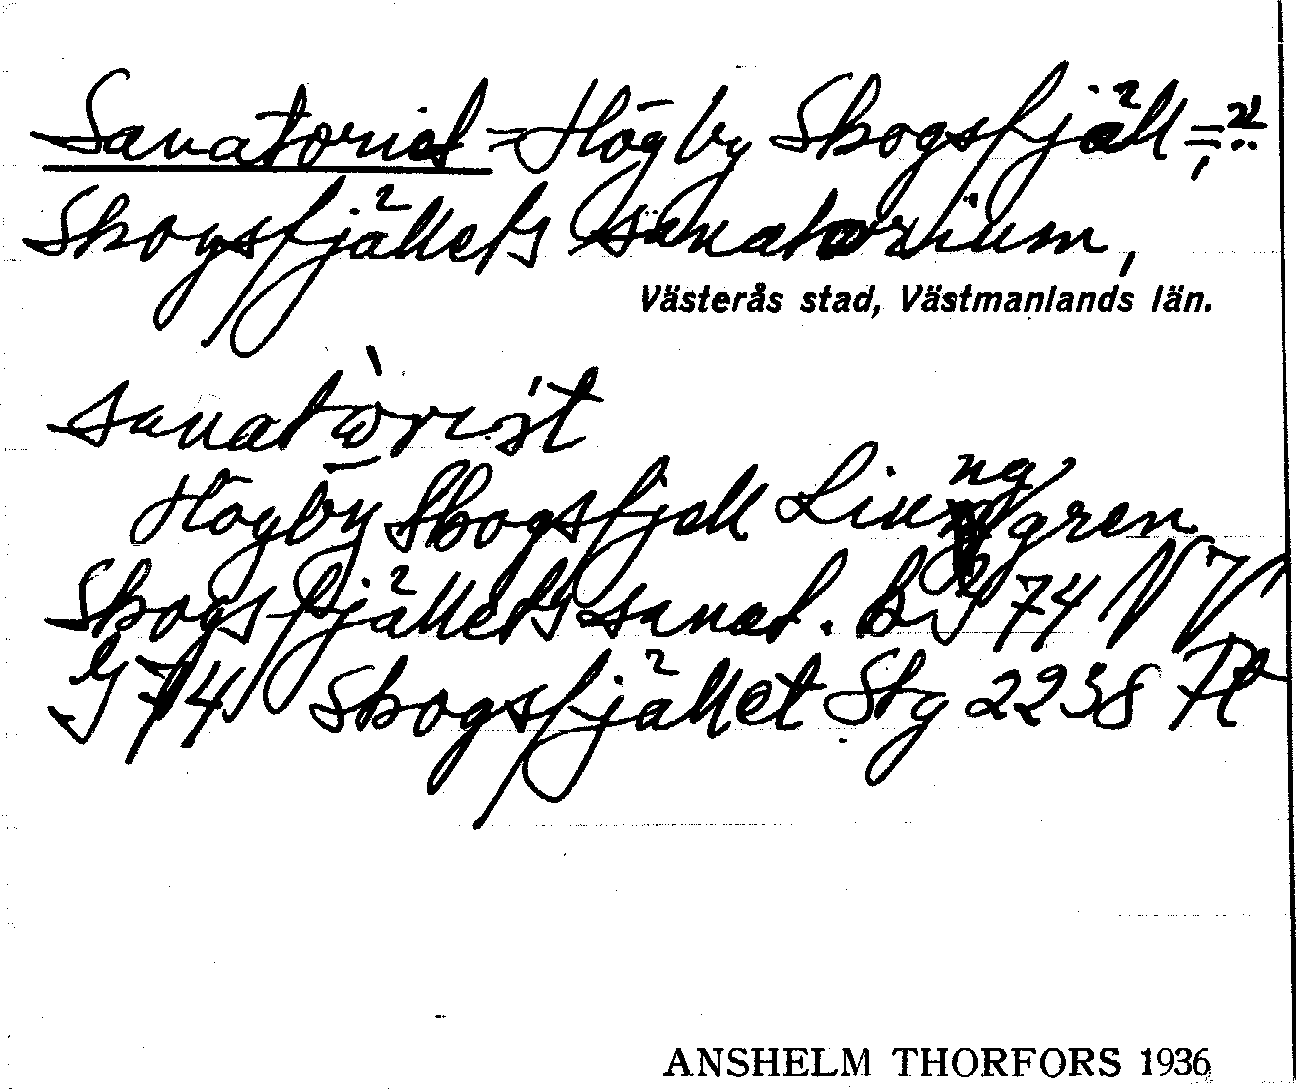 Sanatoriet = Högby Skogsfjäll =
Skogsfjällets sanatorium,
Västerås stad, Västmanlands län.
sanatòrist
Högby Skogsfjäll Liungren
Skogsfjällets sanat. Bl 74 NV
G 74 Skogsfjället Stg 2238 Pl
ANSHELM THORFORS 1936